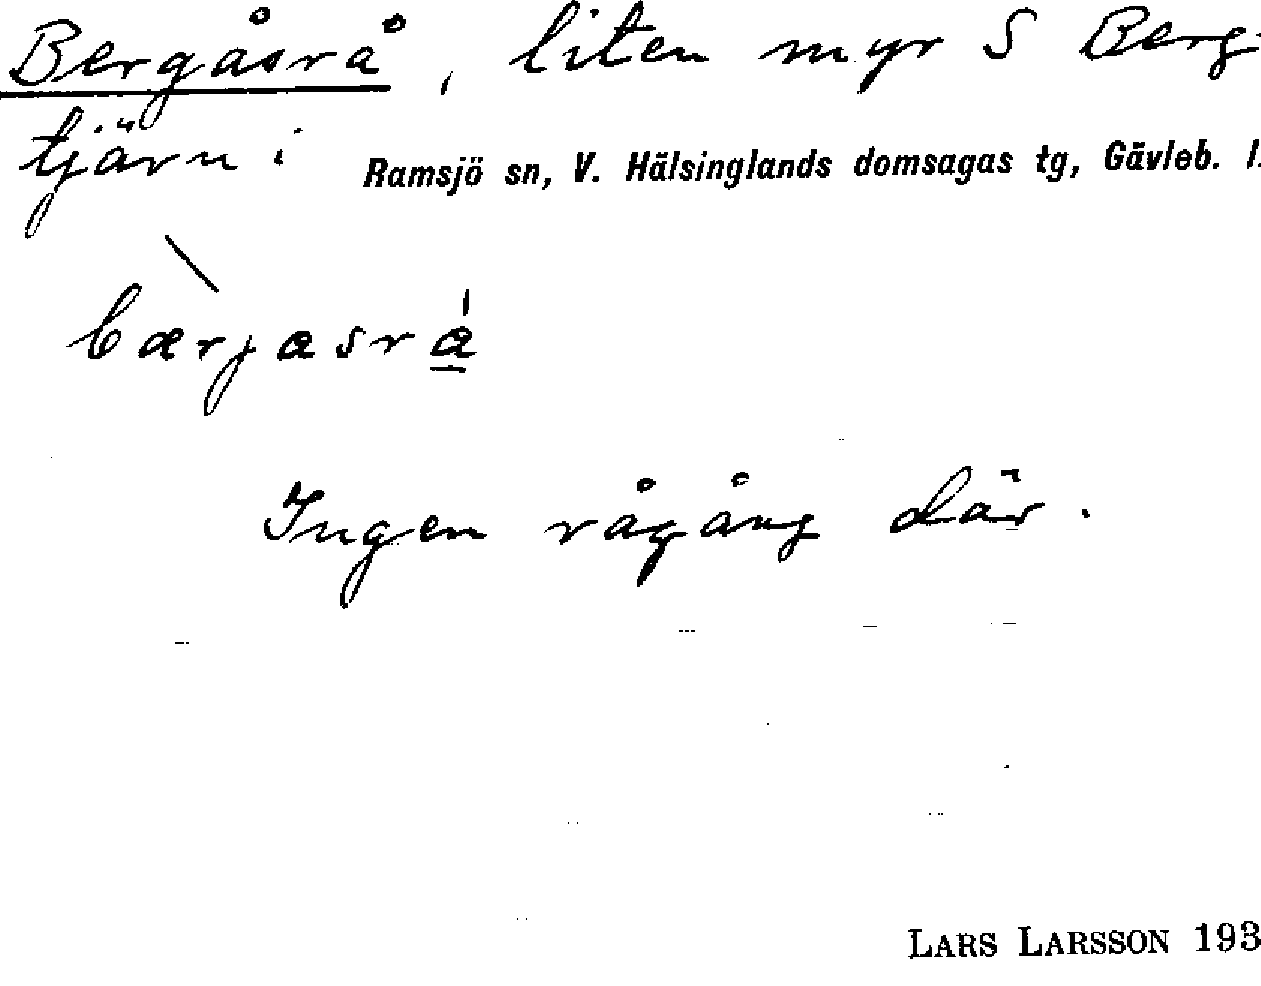 Bergåsrå, liten myr S Berg-
tjärn i Ramsjö sn, V. Hälsinglands domsagas tg, Gävleb. l.
bærjasrá̱
Ingen rågång där.
LARS LARSSON 193